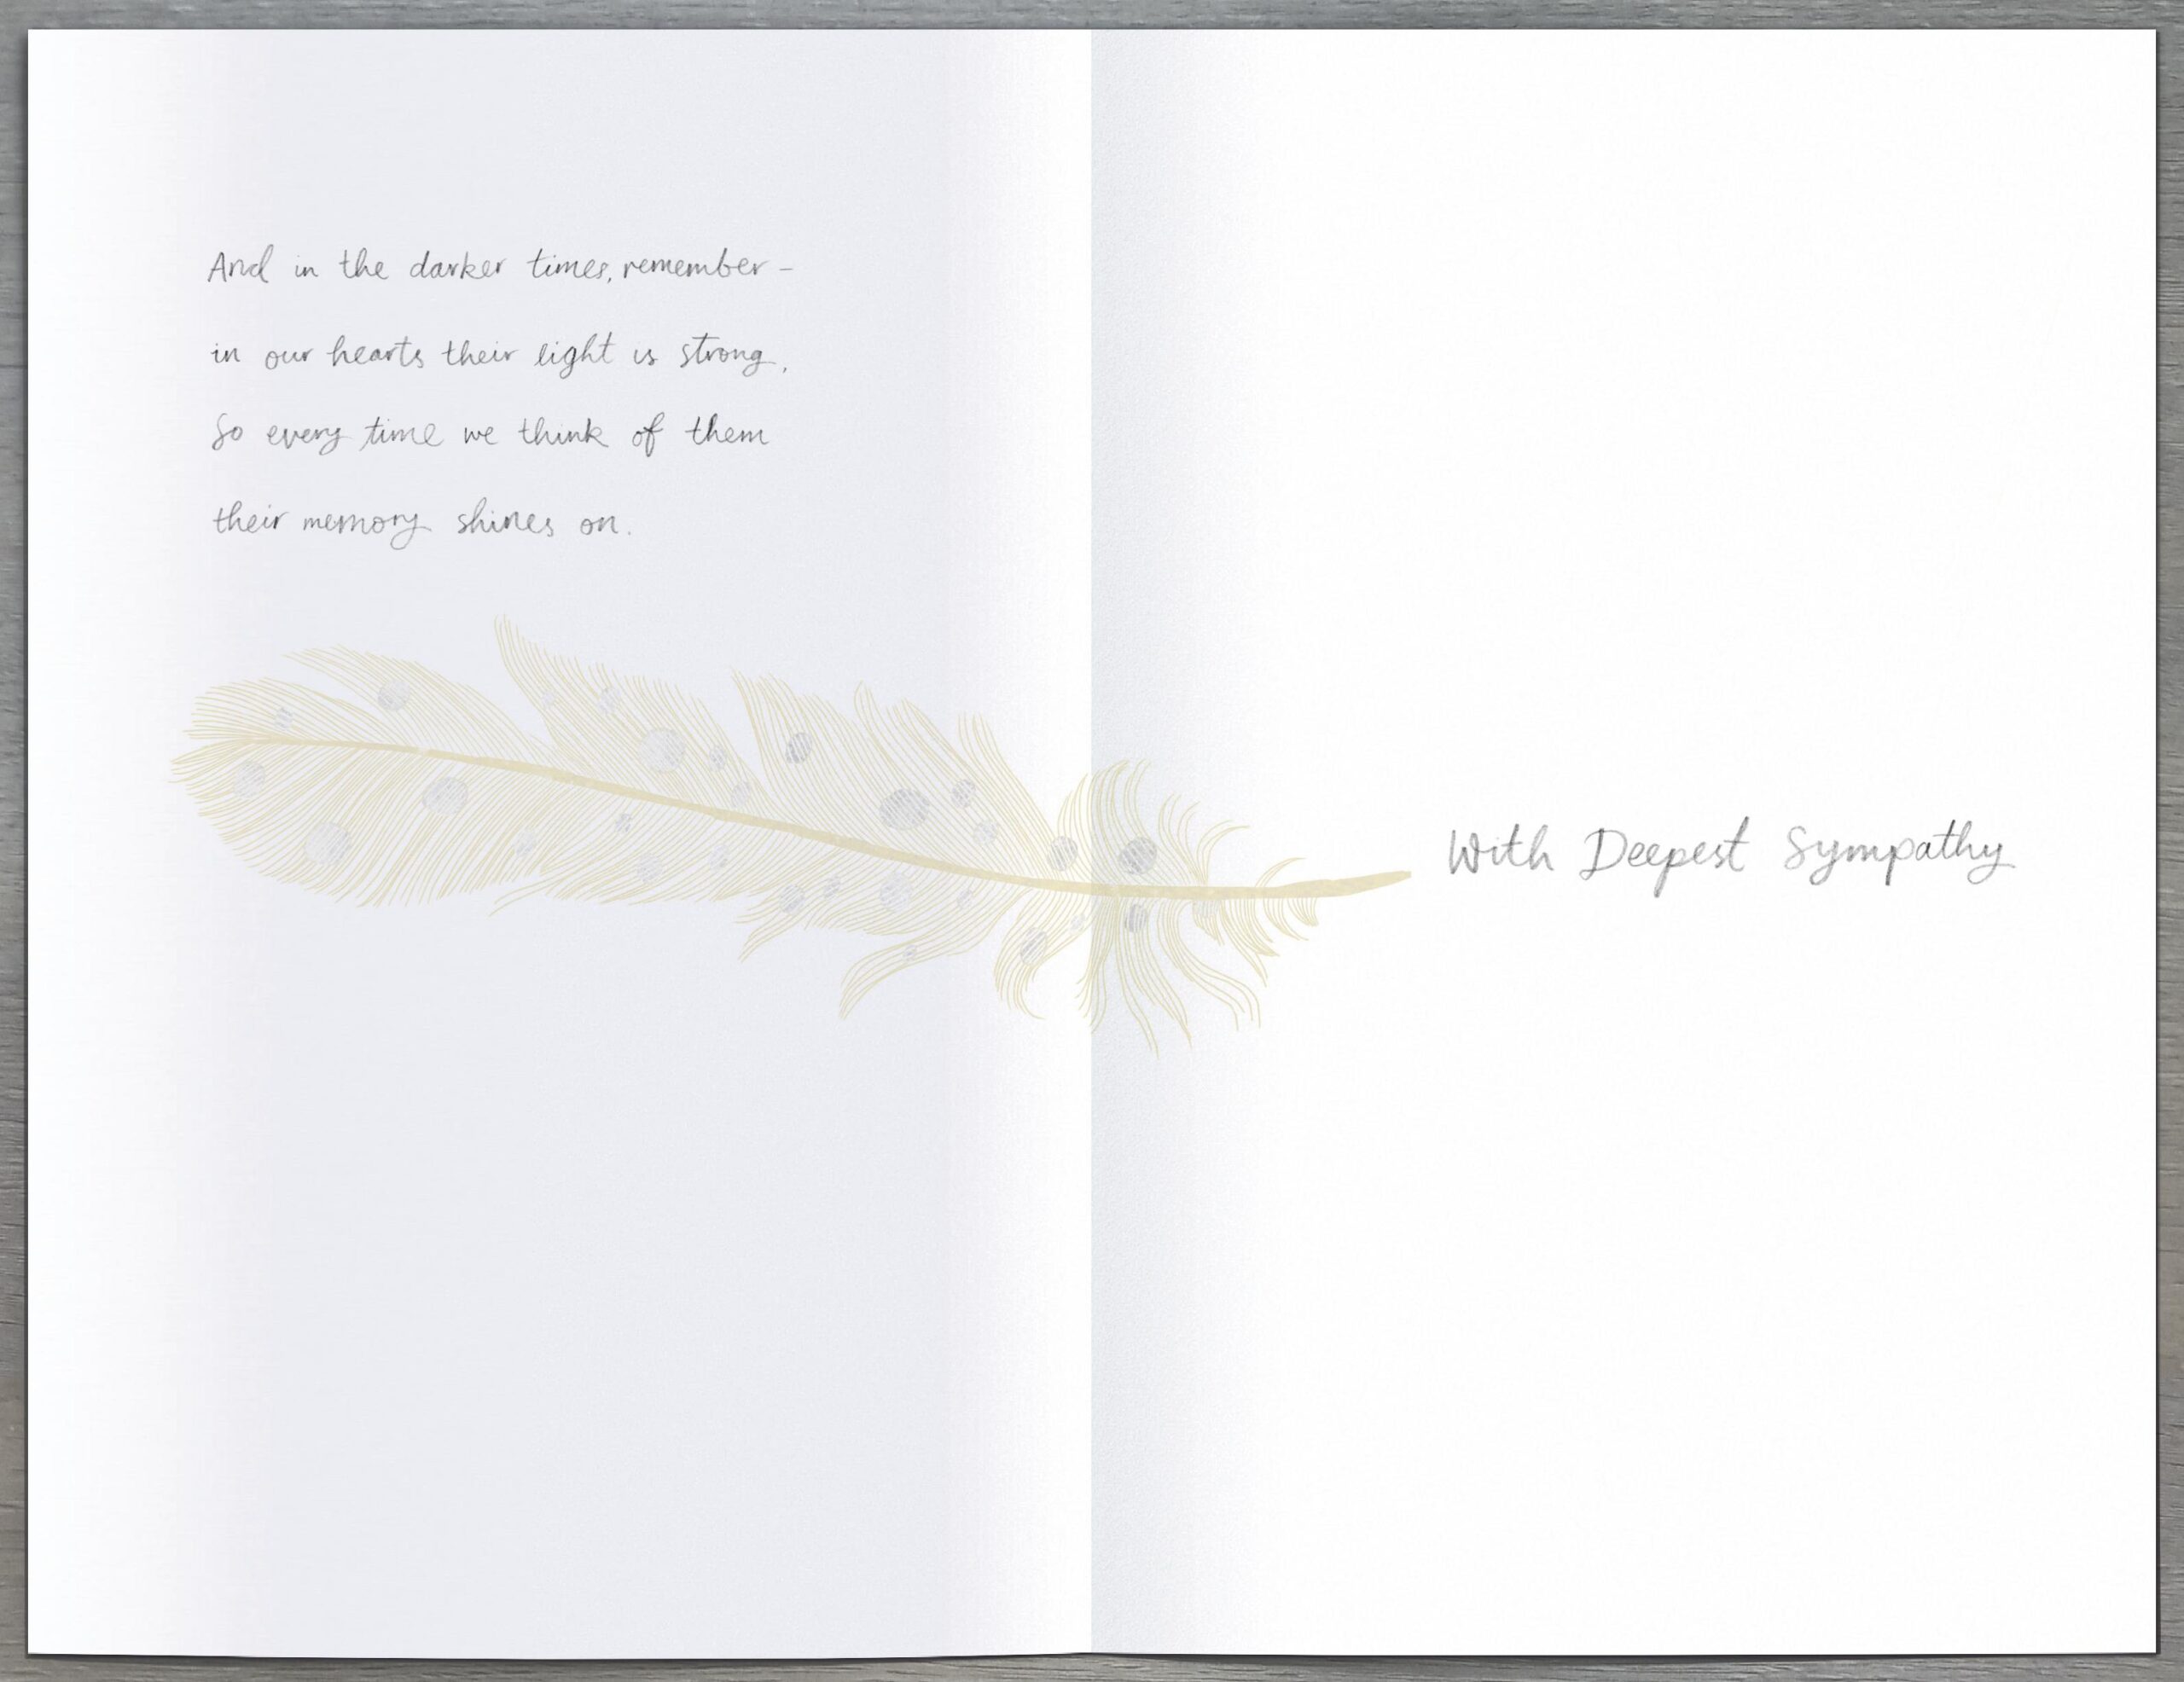 And in the darker times, remember -
in our hearts their light is strong,
So every time we think of them
their memory shines on.
With Deepest Sympathy